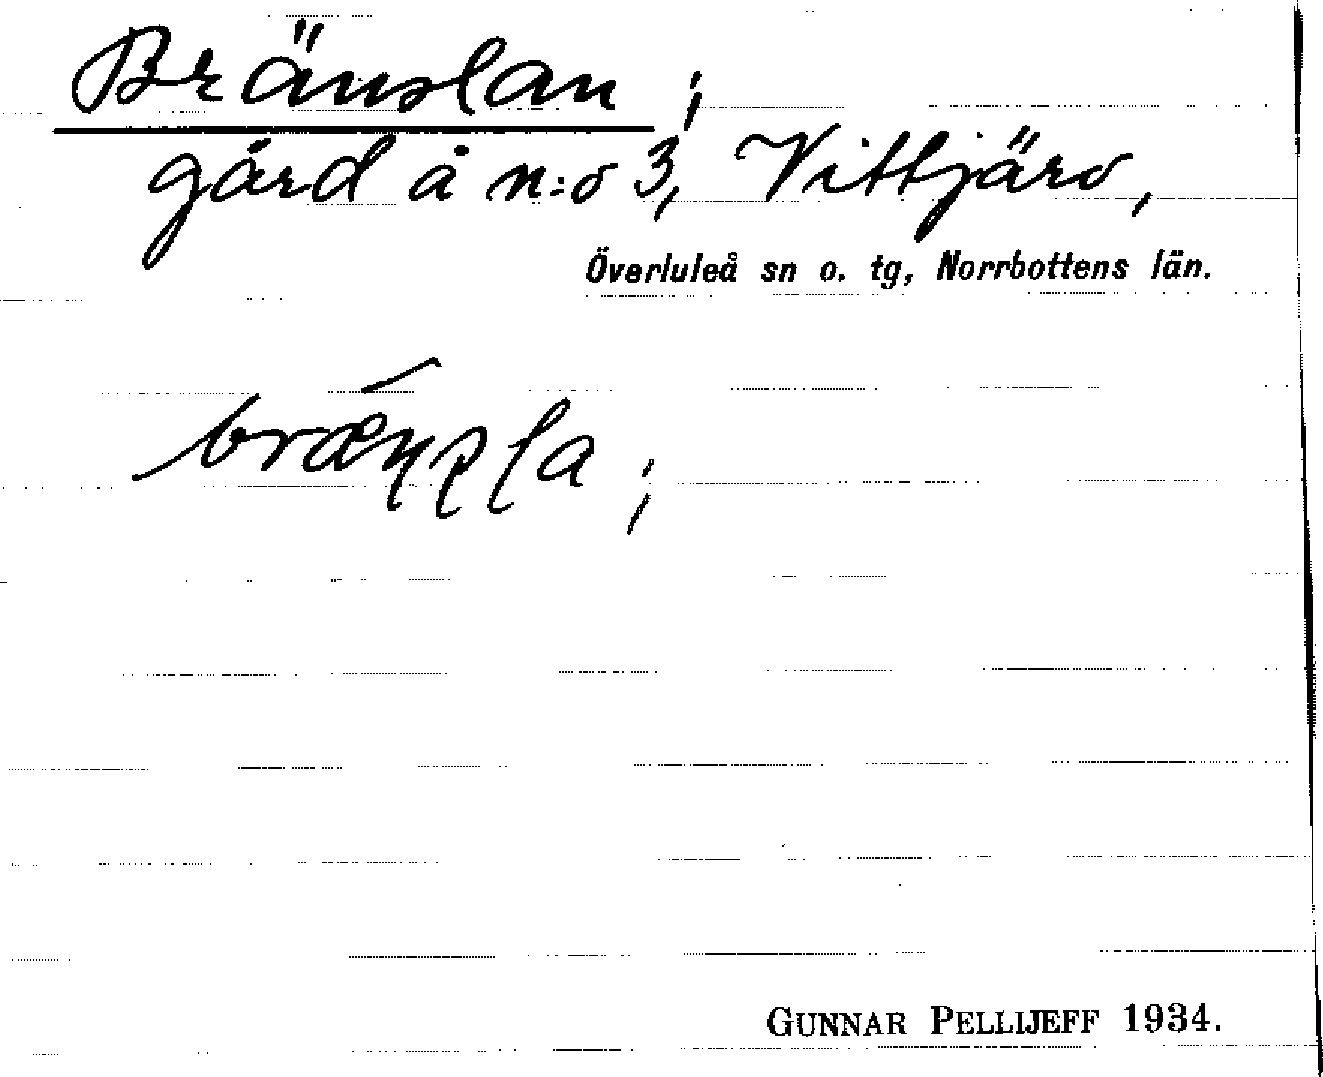 Bränslan;
gård å n:o 3, Vittjärv,
Överluleå sn o. tg, Norrbottens län.
GUNNAR PELLIJEFF 1934.